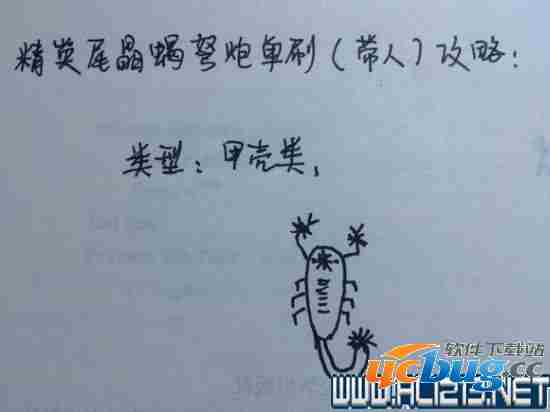 精英尾晶蝎弩炮单刷(带人)攻略:
类型:甲壳类,
软件下载站
ucbug.cc
WWW.ALI213.NET